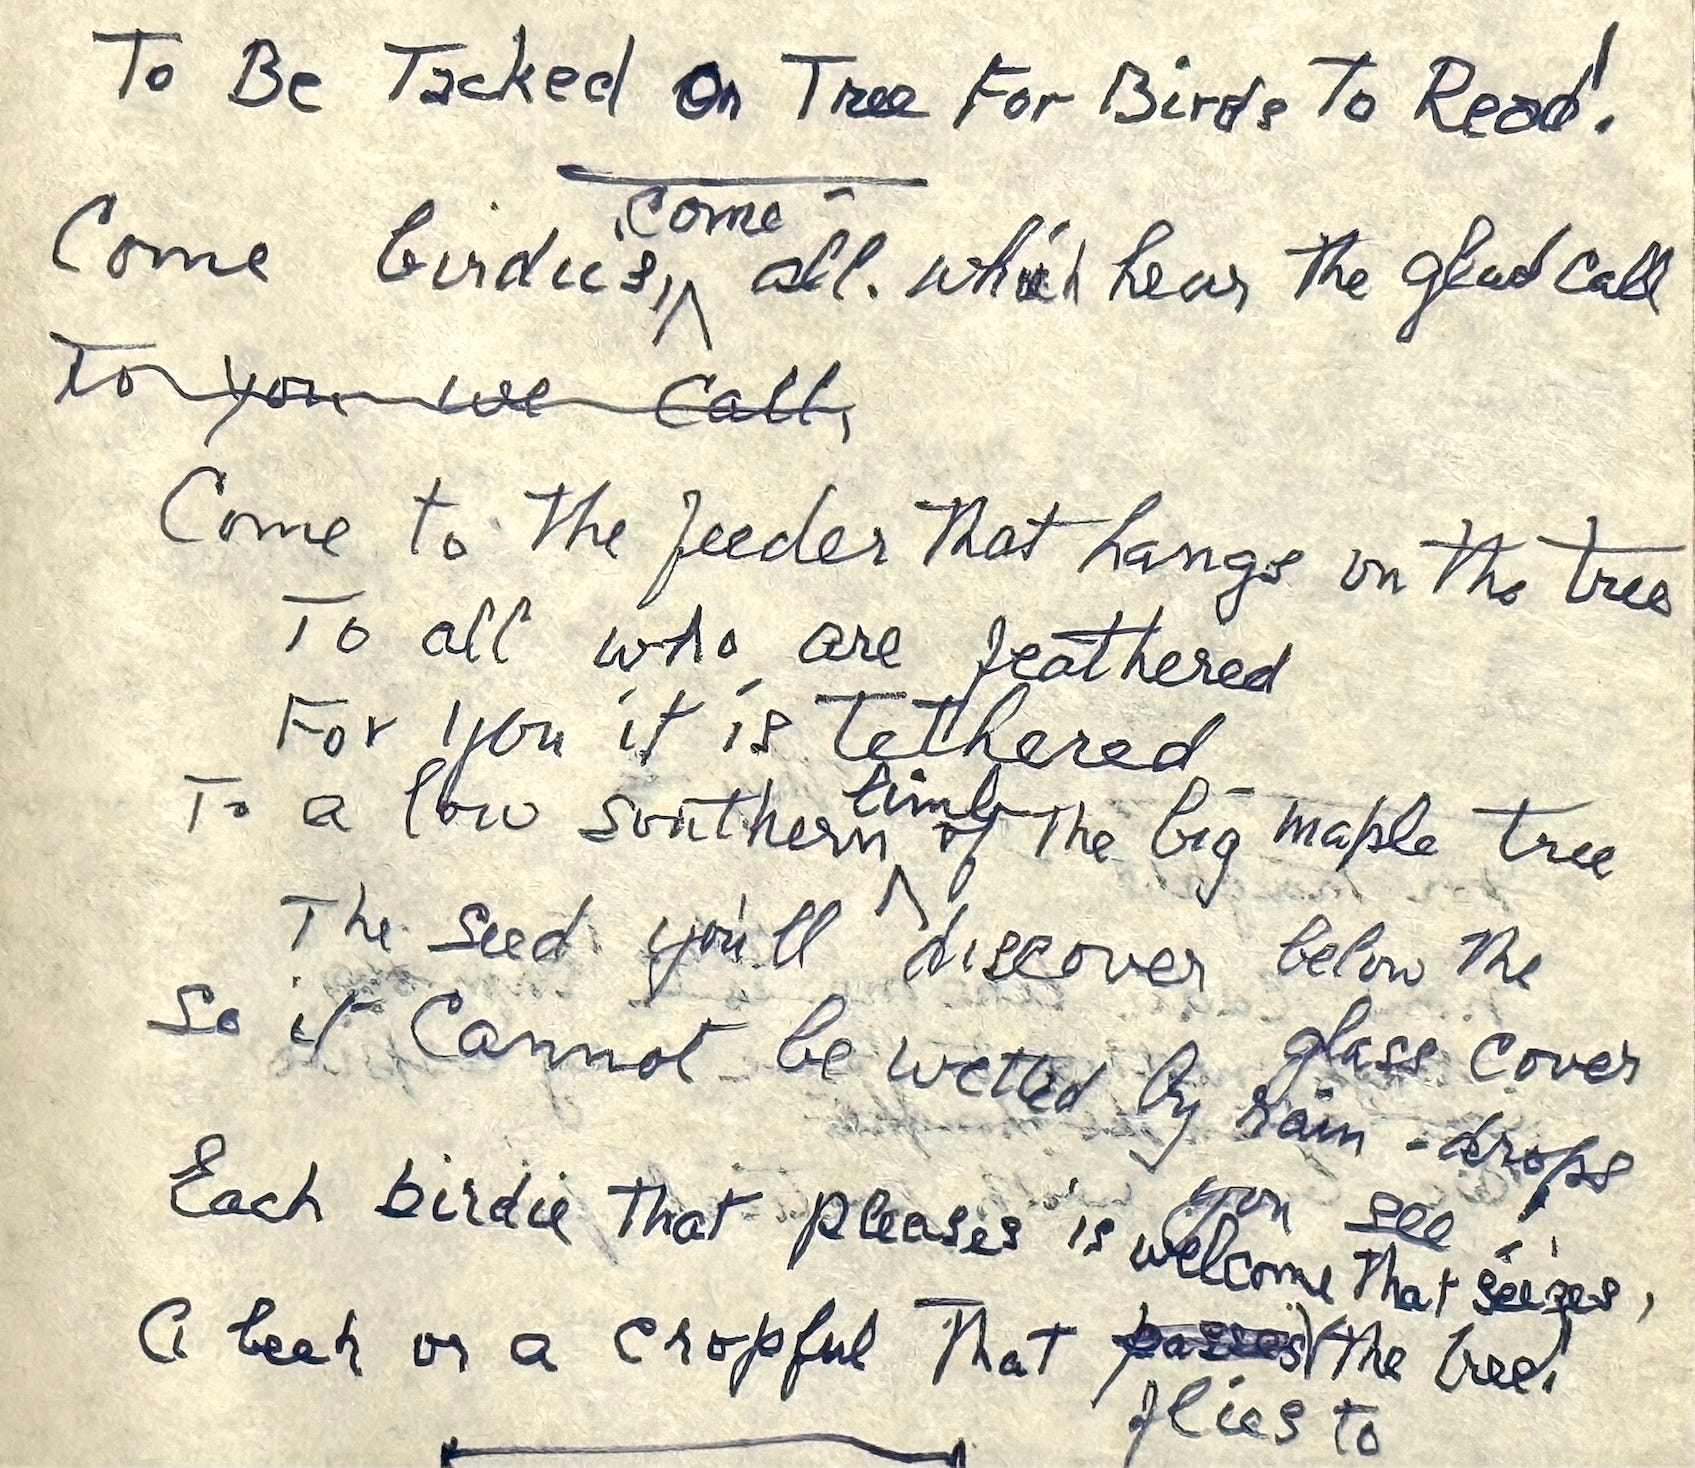 To Be Tacked On Tree For Birds To Read!
Come birdies, come all. which hear the glad call
To you we call,
Come to the feeder that hangs on the tree
To all who are feathered
For you it is tethered
To a low southern limb of the big maple tree
The seed you'll discover below the
glass cover
So it cannot be wetted by rain-drops
you see!
Each birdie that pleases is welcome that seizes,
A beak or a cropful that passes the tree!
flies to